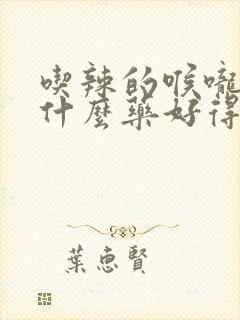 喫辣的喉嚨
什麼藥好得
葉惠賢